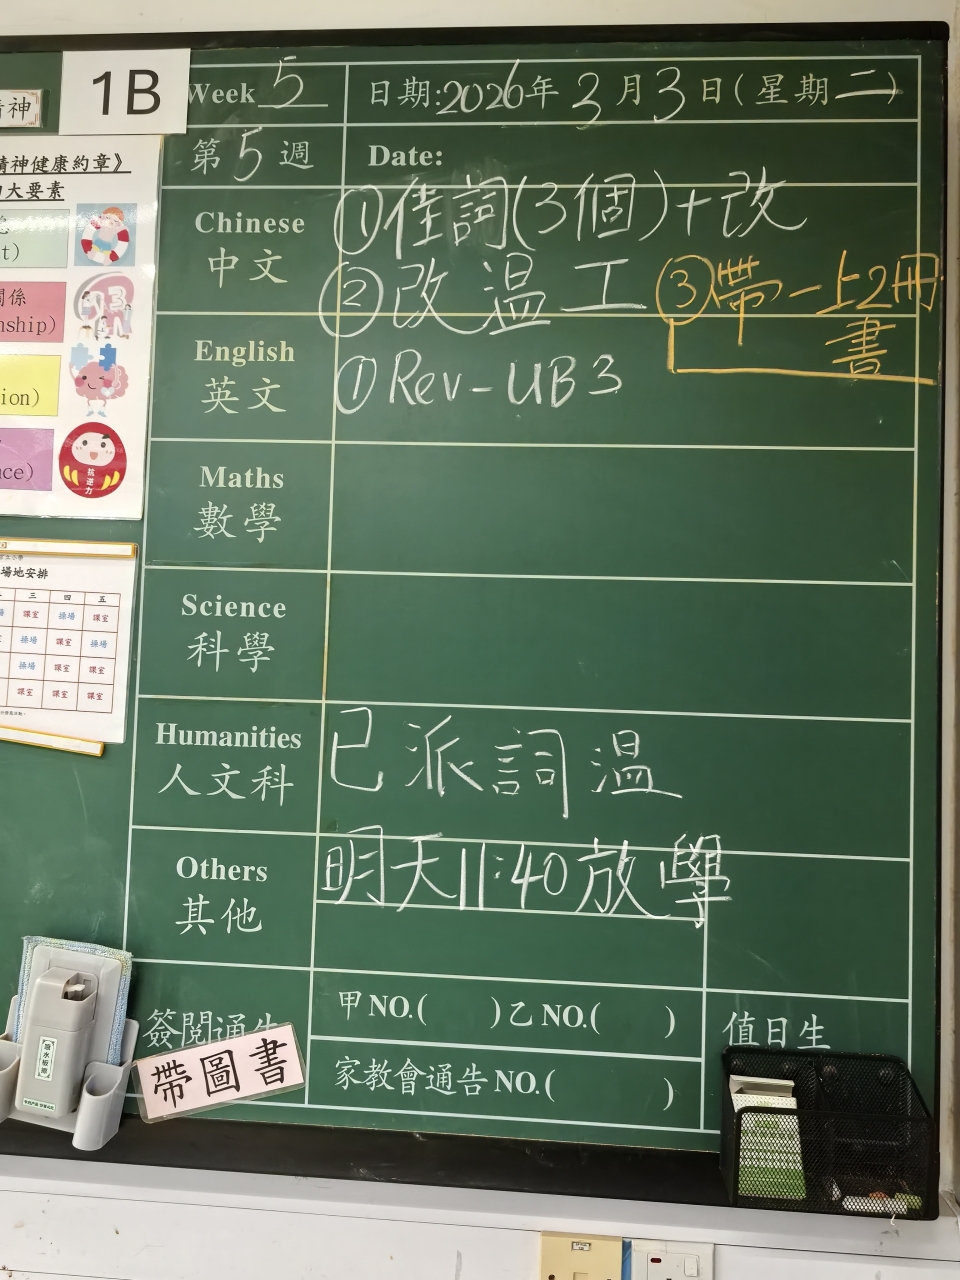 精神
1B
Week 5
日期:2026年3月3日(星期二)
第5週
Date:
精神健康約章》
大要素
Chinese
中文
①佳詞(3個)+改
②改溫工
③帶一上2冊
書
English
英文
①Rev-UB3
Maths
數學
Science
科學
Humanities
人文科
已派詞溫
Others
其他
明天11:40放學
甲NO.( )乙NO.( )
值日生
簽閱通告
家教會通告NO.( )
帶圖書
關係
nship)
ion)
nce)
抗逆力
場地安排
三 四 五
課室 操場 課室
操場 課室 操場
操場 課室 課室
課室 課室 課室